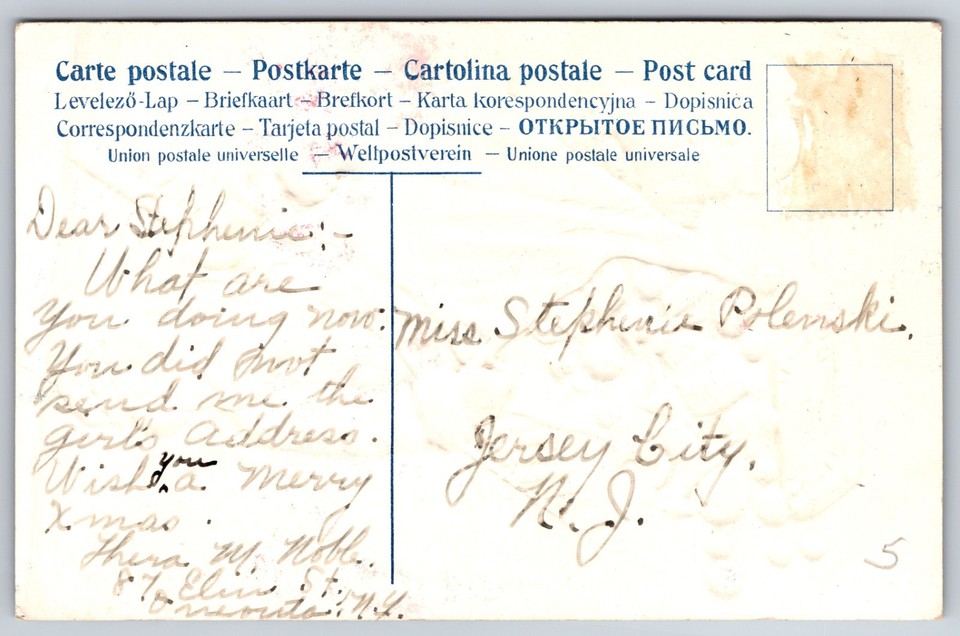 Carte postale – Postkarte – Cartolina postale – Post card
Levelező-Lap – Briefkaart – Brefkort – Karta korespondencyjna – Dopisnica
Correspondenzkarte – Tarjeta postal – Dopisnice – ОТКРЫТОЕ ПИСЬМО.
Union postale universelle – Weltpostverein – Unione postale universale
Dear Stephenie:-
What are
you doing now.
You did not
send me the
girl's address.
Wish you a Merry
Xmas.
Thera M. Noble.
87 Elm St.
Oneonta. N.Y.
Miss Stephenie Polenski.
Jersey City,
N. J.
5